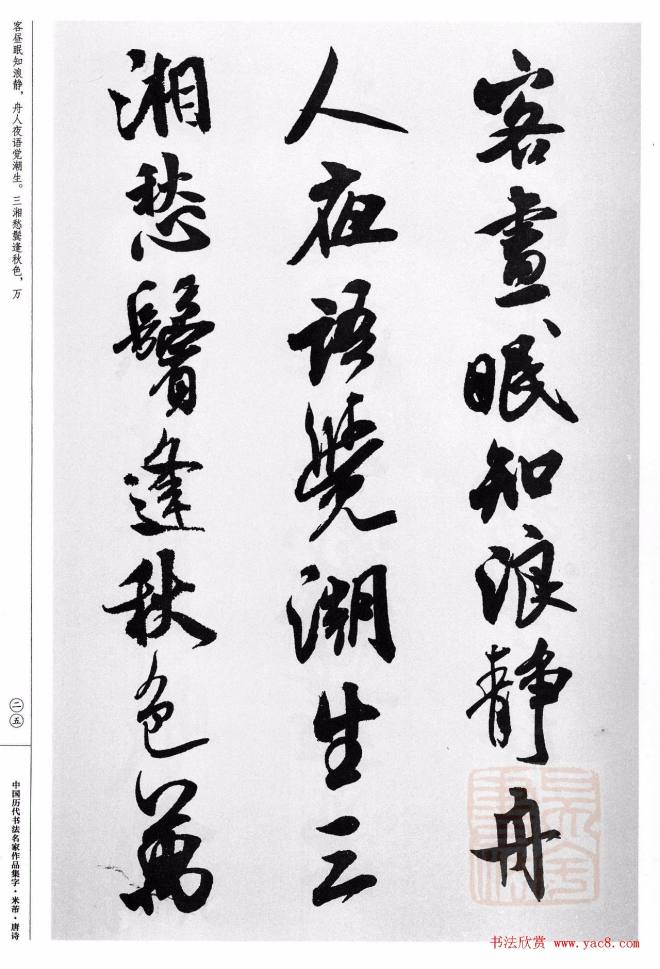 客晝眠知浪靜舟
人夜語覺潮生三
湘愁鬢逢秋色萬
客昼眠知浪静，舟人夜语觉潮生。三湘愁鬓逢秋色，万
二五
中国历代书法名家作品集字·米芾·唐诗
书法欣赏 www.yac8.com